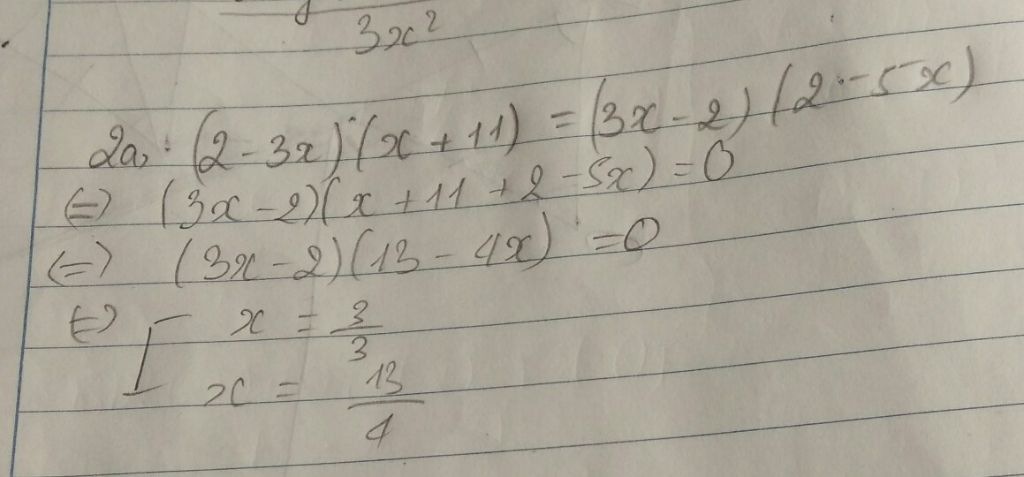 3x²
2a, : (2 - 3x) (x + 11) = (3x - 2) (2 - 5x)
⇔ (3x - 2)(x + 11 + 2 - 5x) = 0
⇔ (3x - 2)(13 - 4x) = 0
⇔ [ x = 3/3
x = 13/4